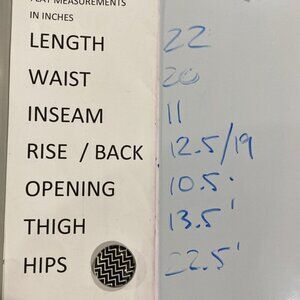 FLAT MEASUREMENTS
IN INCHES
LENGTH 22
WAIST 20
INSEAM 11
RISE / BACK 12.5/19
OPENING 10.5
THIGH 13.5'
HIPS 22.5'